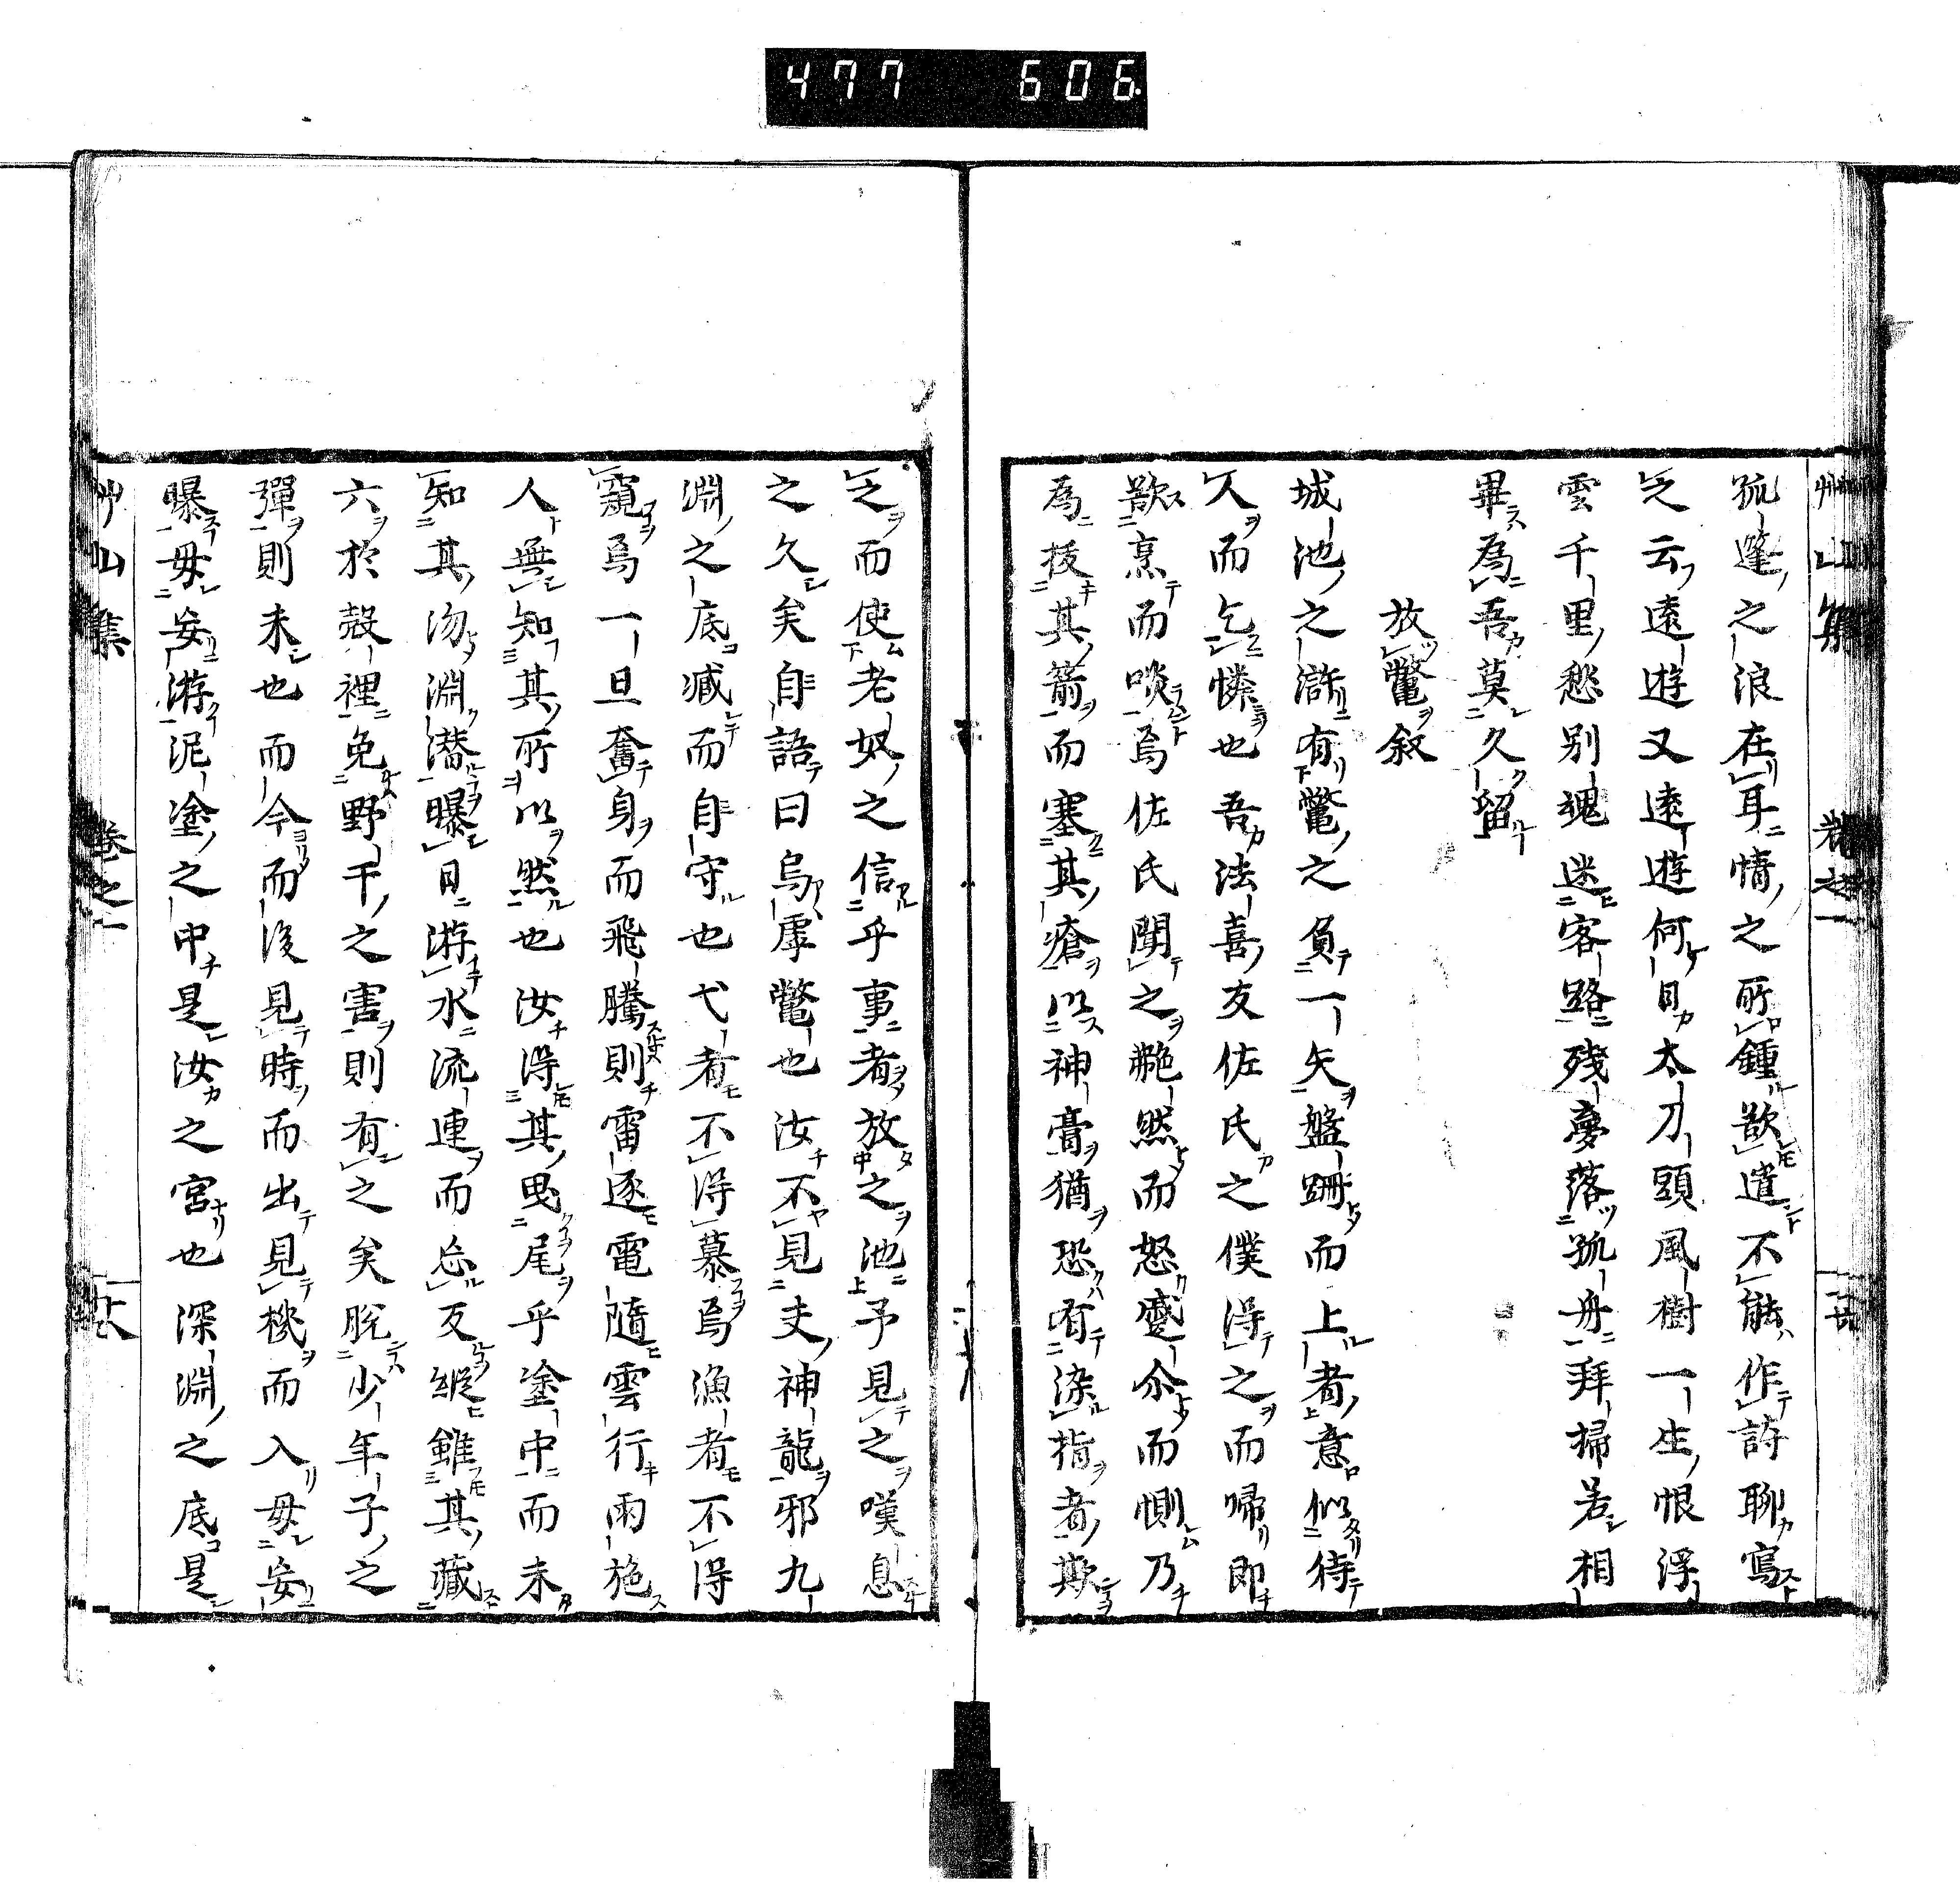 477 606.
孤篷之浪在耳情之所鍾欲遣不能作詩聊寫
之云遠遊又遠遊何日太刀頭風樹一生恨浮
雲千里愁別魂迷客路殘夢落孤舟拜掃若相
畢為吾莫久留
放鼈叙
城池之滸有鼈之負一矢盤跚而上者意似待
人而乞憐也吾法喜友佐氏之僕得之而歸即
欲烹而啖焉佐氏聞之艴然而怒蹙尒而惻乃
為拔其箭而塞其瘡以神膏猶恐有染指者欺
之而使老奴之信乎事者放之池予見之嘆息
之久矣自語曰烏虖鼈也汝不見夫神龍邪九
淵之底藏而自守也弋者不得慕焉漁者不得
窺焉一旦奮身而飛騰則雷逐電隨雲行雨施
人無知其所以然也汝得其曳尾乎塗中而未
知其沕淵潛曝日游水流連而忘反縱雖其藏
六於殼裡免野干之害則有之矣脫少年子之
彈則未也而今而後見時而出見機而入毋妄
曝毋妄游泥塗之中是汝之宮也深淵之底是
艸山集 卷之一